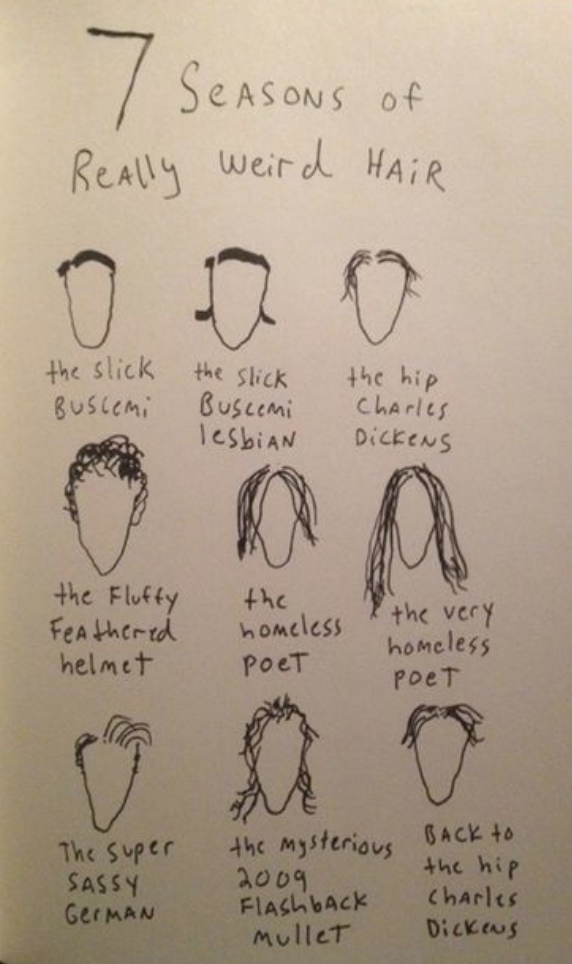 7 SEASONS of
REALLY WEIRD HAIR
the slick
BUSCEMI
the slick
BUSCEMI
lesbian
the hip
CHARLES
DICKENS
the FLUFFY
FEAthered
helmet
the
homeless
POET
the very
homeless
POET
The Super
SASSY
GERMAN
the mysterious
2009
FLAShbACK
mulleT
BACK to
the hip
Charles
Dickens